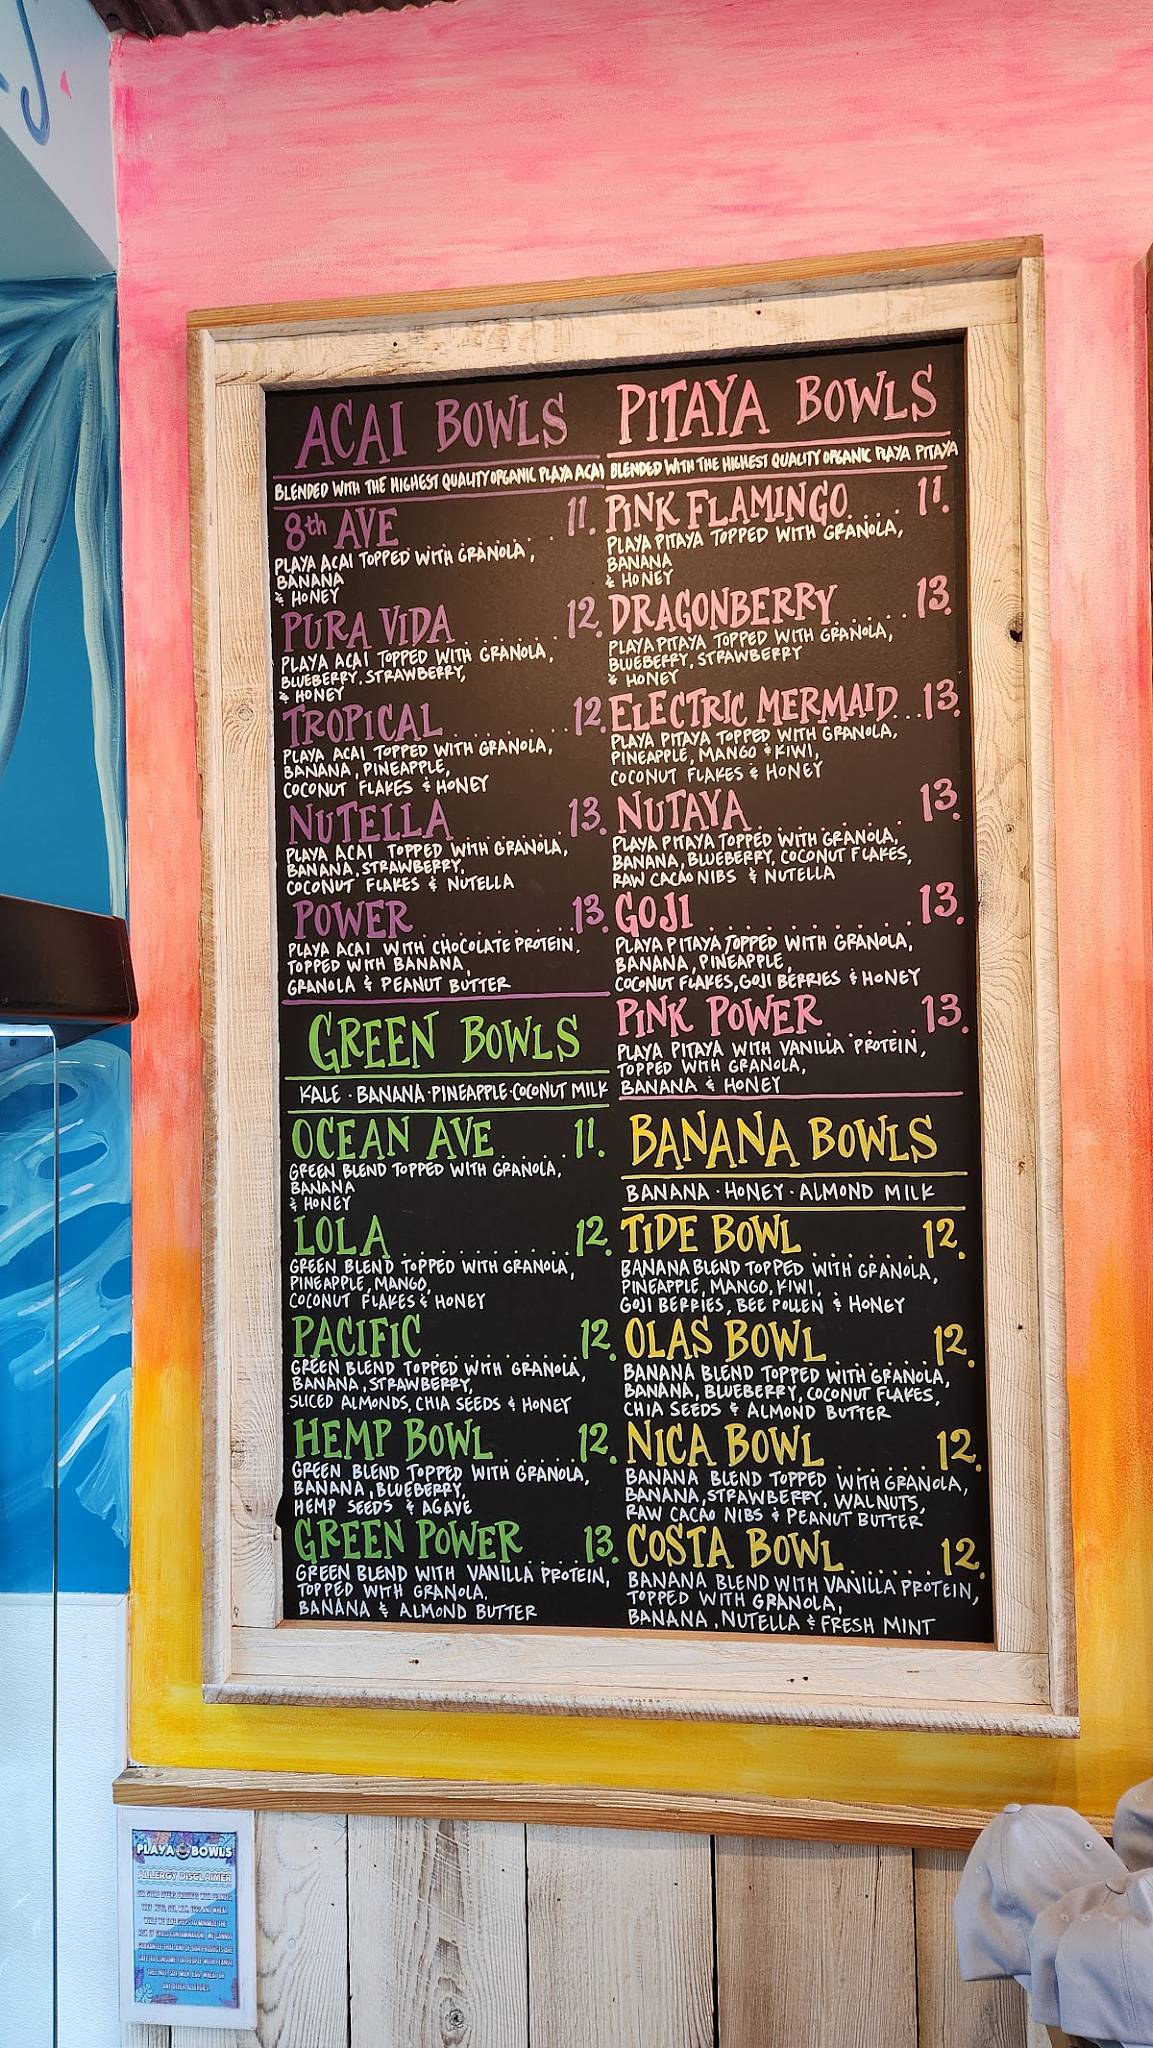 ACAI BOWLS
BLENDED WITH THE HIGHEST QUALITY ORGANIC PLAYA ACAI
8th AVE . . . . . . . . . 11.
PLAYA ACAI TOPPED WITH GRANOLA,
BANANA
& HONEY
PURA VIDA . . . . . . . 12.
PLAYA ACAI TOPPED WITH GRANOLA,
BLUEBERRY, STRAWBERRY,
& HONEY
TROPICAL . . . . . . . . 12.
PLAYA ACAI TOPPED WITH GRANOLA,
BANANA, PINEAPPLE,
COCONUT FLAKES & HONEY
NUTELLA . . . . . . . 13.
PLAYA ACAI TOPPED WITH GRANOLA,
BANANA, STRAWBERRY,
COCONUT FLAKES & NUTELLA
POWER . . . . . . . . . 13.
PLAYA ACAI WITH CHOCOLATE PROTEIN,
TOPPED WITH BANANA,
GRANOLA & PEANUT BUTTER
GREEN BOWLS
KALE · BANANA · PINEAPPLE · COCONUT MILK
OCEAN AVE . . . . 11.
GREEN BLEND TOPPED WITH GRANOLA,
BANANA
& HONEY
LOLA . . . . . . . . . . 12.
GREEN BLEND TOPPED WITH GRANOLA,
PINEAPPLE, MANGO,
COCONUT FLAKES & HONEY
PACIFIC . . . . . . . . . 12.
GREEN BLEND TOPPED WITH GRANOLA,
BANANA, STRAWBERRY,
SLICED ALMONDS, CHIA SEEDS & HONEY
HEMP BOWL . . . . . 12.
GREEN BLEND TOPPED WITH GRANOLA,
BANANA, BLUEBERRY,
HEMP SEEDS & AGAVE
GREEN POWER . . . . 13.
GREEN BLEND WITH VANILLA PROTEIN,
TOPPED WITH GRANOLA,
BANANA & ALMOND BUTTER
PITAYA BOWLS
BLENDED WITH THE HIGHEST QUALITY ORGANIC PLAYA PITAYA
PINK FLAMINGO . . . . 11.
PLAYA PITAYA TOPPED WITH GRANOLA,
BANANA
& HONEY
DRAGONBERRY . . . . 13.
PLAYA PITAYA TOPPED WITH GRANOLA,
BLUEBERRY, STRAWBERRY
& HONEY
ELECTRIC MERMAID . . 13.
PLAYA PITAYA TOPPED WITH GRANOLA,
PINEAPPLE, MANGO & KIWI,
COCONUT FLAKES & HONEY
NUTAYA . . . . . . . . 13.
PLAYA PITAYA TOPPED WITH GRANOLA,
BANANA, BLUEBERRY, COCONUT FLAKES,
RAW CACAO NIBS & NUTELLA
GOJI . . . . . . . . . . 13.
PLAYA PITAYA TOPPED WITH GRANOLA,
BANANA, PINEAPPLE,
COCONUT FLAKES, GOJI BERRIES & HONEY
PINK POWER . . . . . . 13.
PLAYA PITAYA WITH VANILLA PROTEIN,
TOPPED WITH GRANOLA,
BANANA & HONEY
BANANA BOWLS
BANANA · HONEY · ALMOND MILK
TIDE BOWL . . . . . . . 12.
BANANA BLEND TOPPED WITH GRANOLA,
PINEAPPLE, MANGO, KIWI,
GOJI BERRIES, BEE POLLEN & HONEY
OLAS BOWL . . . . . . . 12.
BANANA BLEND TOPPED WITH GRANOLA,
BANANA, BLUEBERRY, COCONUT FLAKES,
CHIA SEEDS & ALMOND BUTTER
NICA BOWL . . . . . . . 12.
BANANA BLEND TOPPED WITH GRANOLA,
BANANA, STRAWBERRY, WALNUTS,
RAW CACAO NIBS & PEANUT BUTTER
COSTA BOWL . . . . . . 12.
BANANA BLEND WITH VANILLA PROTEIN,
TOPPED WITH GRANOLA,
BANANA, NUTELLA & FRESH MINT
PLAYA BOWLS
ALLERGY DISCLAIMER